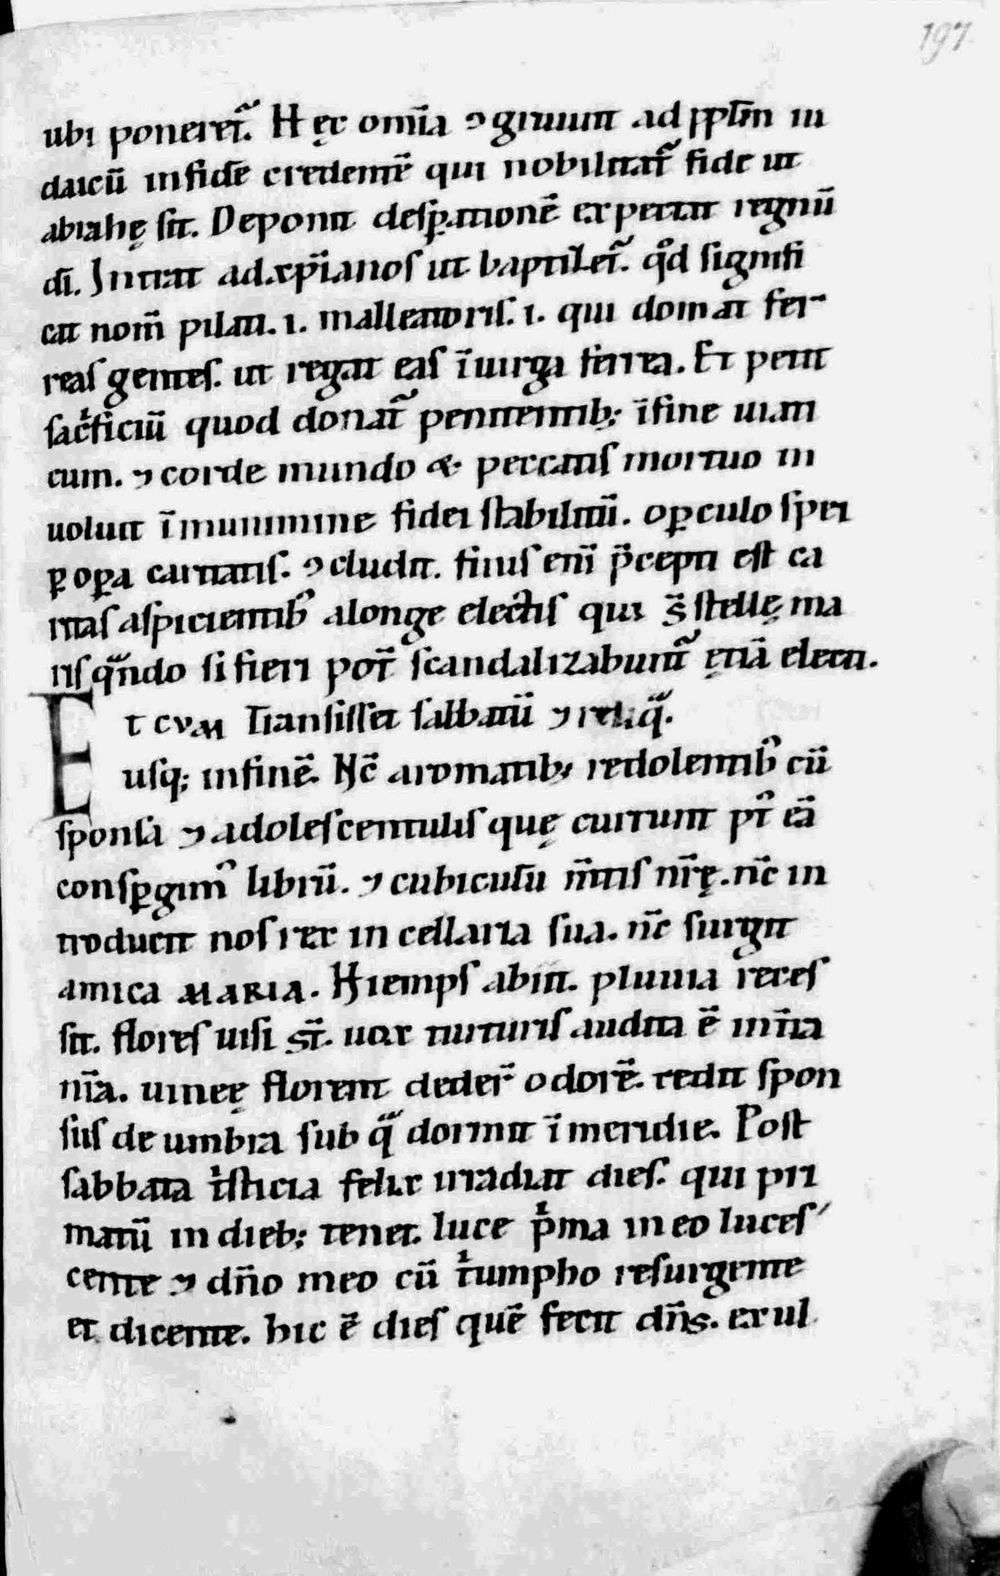 197
ubi poneret᷑. Hęc om̄ia ↄgruunt ad pp̄lm iu
daicū in fidē credentē qui nobilitat᷑ fide ut
abrahę sit. Deponit desꝑationē expectat regnū
dī. Intrat ad xp̄ianos ut baptizet᷑. qd̄ signifi
cat nom̄ pilati. .i. malleatoris. .i. qui domat fer-
reas gentes. ut regat eas ī uirga ferrea. Et petit
sac͛ficiū quod donat᷑ penitentib; ī fine uiati
cum. ⁊ corde mundo & peccatis mortuo in
uoluit ī munimine fidei stabilitū. oꝑculo spei
ꝑ oꝑa caritatis. ↄcludit. finis enī p̄cepti est ca
ritas aspicientib᷒ a longe electis qui s̄ stellę ma
ris qn̄do si fieri pot̄ scandalizabunt᷑ ętiā electi.
ET CVM Transisset sabbatū ⁊ reliq̄.
usq; in finē. Nc̄ aromatib; redolentib᷒ cū
sponsa ⁊ adolescentulis quę currunt p᷒t eā
consꝑgim᷒ librū. ⁊ cubiculū m̄tis nr̄ę. nc̄ in
troducit nos rex in cellaria sua. nc̄ surgit
amica MARIA. Hiemps abiit. pluuia reces
sit. flores uisi st̄. uox turturis audita ē in t̄ra
nr̄a. uineę florent deder̄ odorē. redit spon
sus de umbra sub q̄ dormit ī meridie. Post
sabbata t͛sticia felix irradiat dies. qui pri
matū in dieb; tenet. luce p͛ma in eo luces
cente ⁊ dn̄o meo cū t͛umpho resurgente
et dicente. hic ē dies quē fecit dn̄s. exul